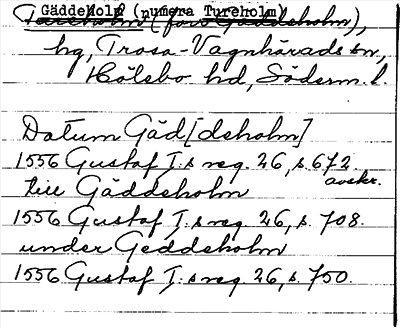 Gäddeholm (numera Tureholm)
Tureholm (förr Gäddeholm),
hg, Trosa-Vagnhärads sn,
Hölebo hd, Söderm. l.
Datum Gäd[deholm]
1556 Gustaf I:s reg. 26, s. 672
avskr.
till Gäddeholm
1556 Gustaf I:s reg. 26, s. 708.
under Geddeholm
1556 Gustaf I:s reg. 26, s. 750.